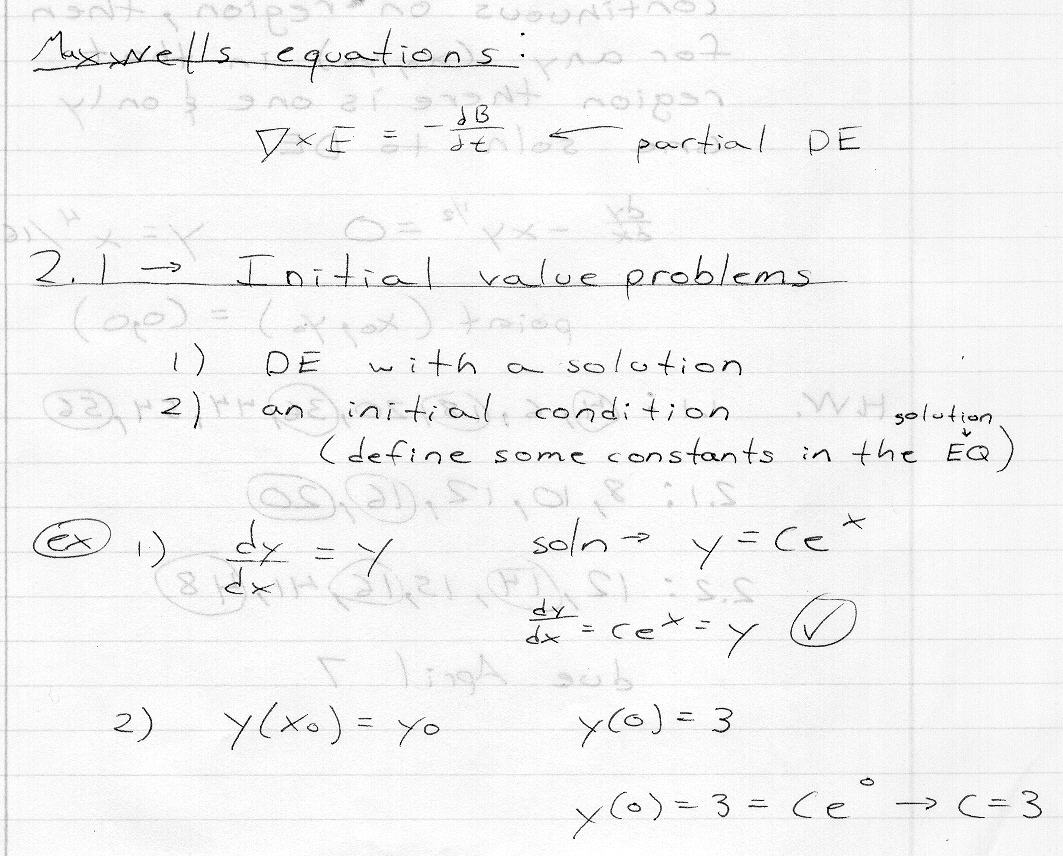 Maxwells equations:
∇×E = -dB/dt ← partial DE
2.1 → Initial value problems
1) DE with a solution
2) an initial condition
solution
(define some constants in the EQ)
ex 1) dy/dx = y soln → y = Ce^x
dy/dx = Ce^x = y ✓
2) y(x₀) = y₀ y(0) = 3
y(0) = 3 = Ce^0 → C = 3